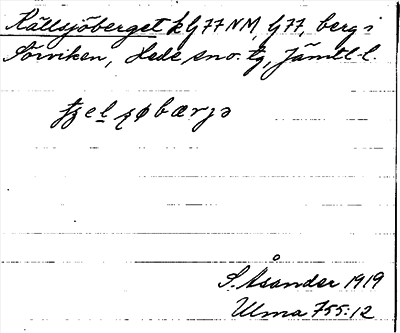 Källsjöberget k G77 NM, G77, berg i
Sörviken, Hede sn o. tg, Jämtl. l.
S. Åsander 1919
Ulma 755:12